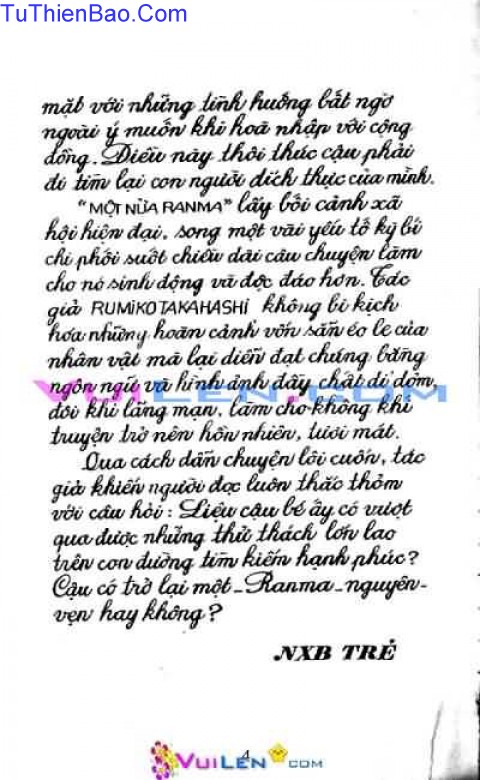 TuThienBao.Com
mặt với những tình huống bất ngờ
ngoài ý muốn khi hoà nhập với cộng
đồng. Điều này thôi thúc cậu phải
đi tìm lại con người đích thực của mình.
"MỘT NỬA RANMA" lấy bối cảnh xã
hội hiện đại, song một vài yếu tố kỳ bí
chi phối suốt chiều dài câu chuyện làm
cho nó sinh động và độc đáo hơn. Tác
giả RUMIKO TAKAHASHI không bi kịch
hóa những hoàn cảnh vốn sẵn éo le của
nhân vật mà lại diễn đạt chúng bằng
ngôn ngữ và hình ảnh đầy chất dí dỏm,
đôi khi lãng mạn, làm cho không khí
truyện trở nên hồn nhiên, tươi mát.
Qua cách dẫn chuyện lôi cuốn, tác
giả khiến người đọc luôn thắc thỏm
với câu hỏi: Liệu cậu bé ấy có vượt
qua được những thử thách lớn lao
trên con đường tìm kiếm hạnh phúc?
Cậu có trở lại một - Ranma - nguyên -
vẹn hay không?
NXB TRẺ
4
VUILEN.COM